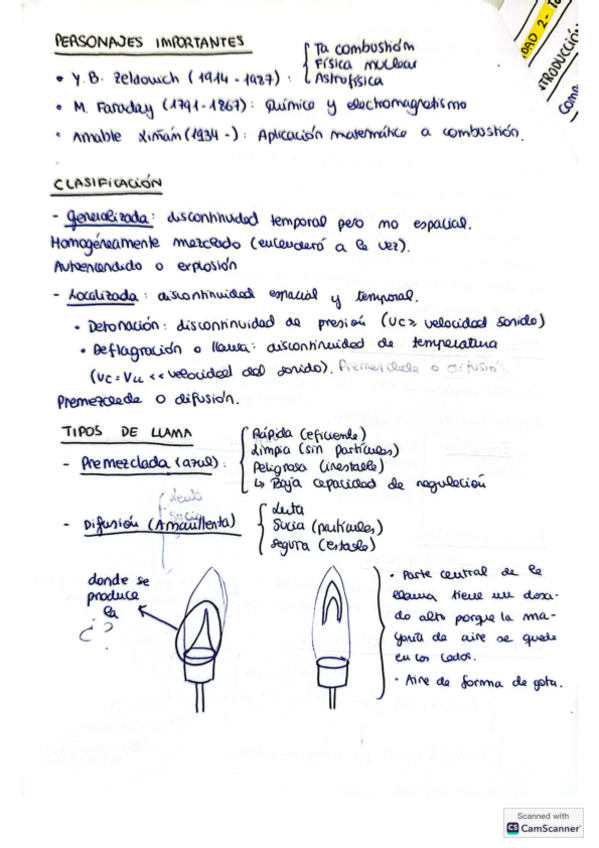 PERSONAJES IMPORTANTES
Ta combustión
Física nuclear
Astrofísica
• Y. B. Zeldowich (1914-1987):
• M. Faraday (1791-1867): Químico y electromagnetismo
• Amable Liñán (1934 -): Aplicación matemático a combustión.
CLASIFICACIÓN
- Generalizada: discontinuidad temporal pero no espacial.
Homogéneamente mezclado (encenderá a la vez).
Autoencendido o explosión
- Localizada: discontinuidad espacial y temporal.
• Detonación: discontinuidad de presión (Uc ≥ velocidad sonido)
• Deflagración o llama: discontinuidad de temperatura
(Uc = VLL << velocidad del sonido). Premezclada o difusión.
Premezclada o difusión.
TIPOS DE LLAMA
- Premezclada (azul):
Rápida (eficiente)
Limpia (sin partículas)
Peligrosa (inestable)
↳ Baja capacidad de regulación
- Difusión (Amarillenta)
Lenta
Sucia (partículas)
Segura (estable)
donde se
produce
la
¿?
• Parte central de la
llama tiene un dosa-
do alto porque la ma-
yoría de aire se quede
en los lados.
• Aire de forma de gota.
DAD 2-
TRODUCCIÓN
Como
Scanned with
CS CamScanner